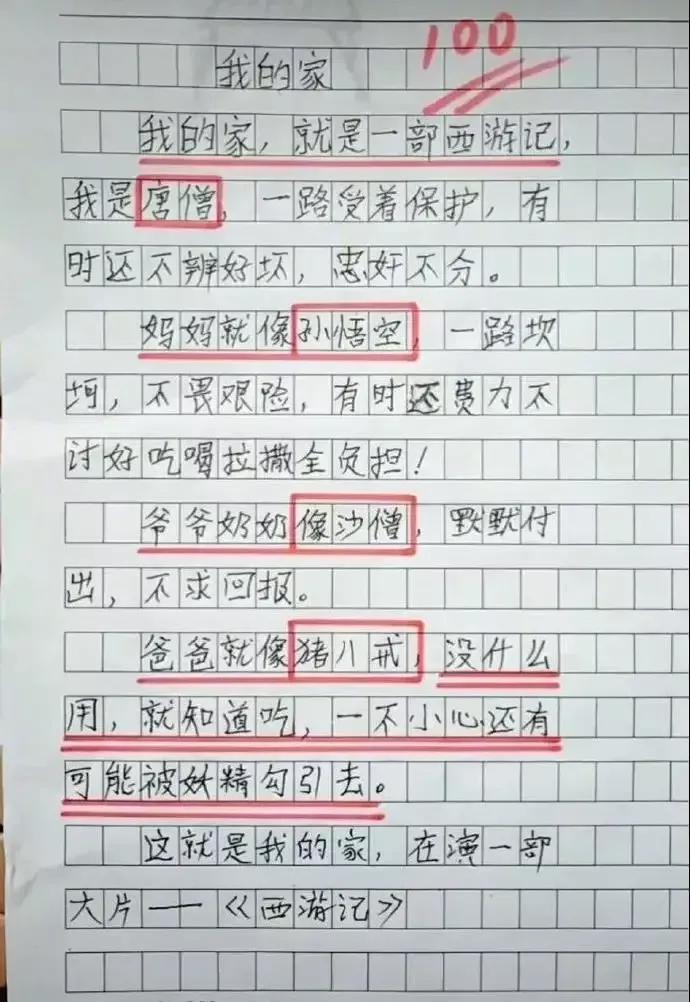 100
我的家
我的家，就是一部西游记，
我是唐僧，一路受着保护，有
时还不辨好坏，忠奸不分。
妈妈就像孙悟空，一路坎
坷，不畏艰险，有时还费力不
讨好吃喝拉撒全负担！
爷爷奶奶像沙僧，默默付
出，不求回报。
爸爸就像猪八戒，没什么
用，就知道吃，一不小心还有
可能被妖精勾引去。
这就是我的家，在演一部
大片——《西游记》